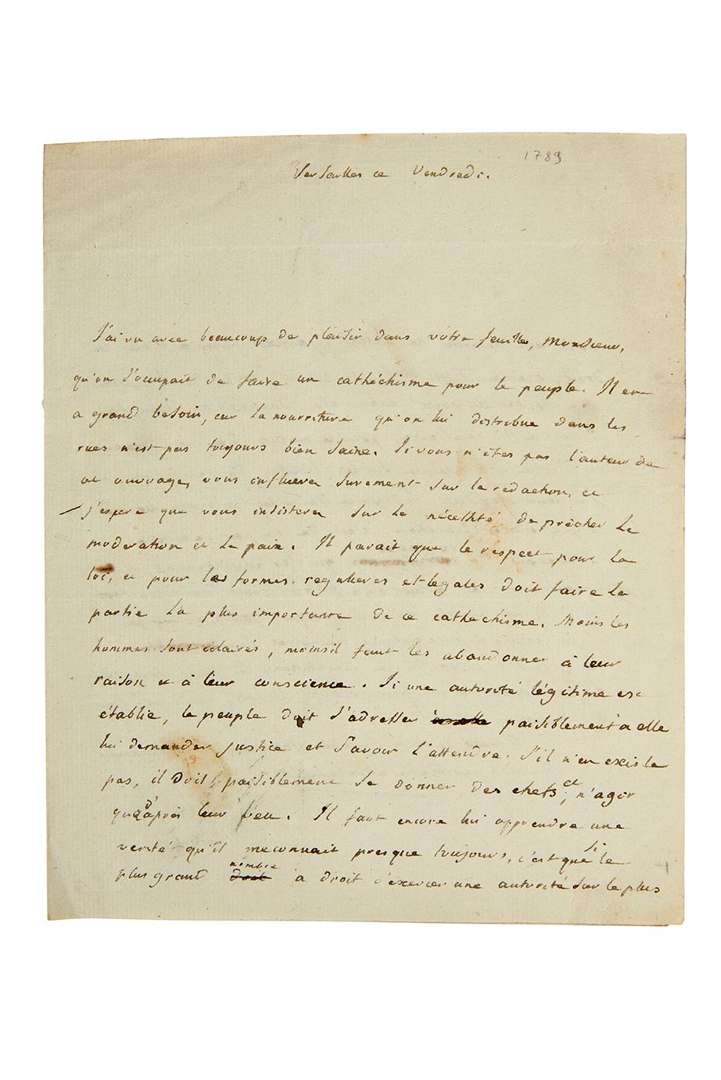 1789
Versailles ce Vendredi.
J'ai vu avec beaucoup de plaisir dans votre feuille, Monsieur,
qu'on s'occupait de faire un cathéchisme pour le peuple. Il en
a grand besoin, car la nourriture qu'on lui distribue dans les
rues n'est pas toujours bien saine. Si vous n'êtes pas l'auteur de
cet ouvrage, vous influerez surement sur la redaction, et
j'espere que vous insisterez sur la nécessité de prêcher la
moderation et la paix. Il parait que le respect pour la
loi, et pour les formes regulieres et legales doit faire la
partie la plus importante de ce cathechisme. Moins les
hommes sont éclairés, moins il faut les abandonner à leur
raison et à leur conscience. Si une autorité légitime est
établie, le peuple doit s'adresser paisiblement à elle
lui demander justice et savoir l'attendre. S'il n'en existe
pas, il doit paisiblement se donner des chefs, et n'agir
que d'après leur . Il faut encore lui apprendre une
verité qu'il meconnait presque toujours, c'est que si le
plus grand nombre a droit d'exercer une autorité sur le plus